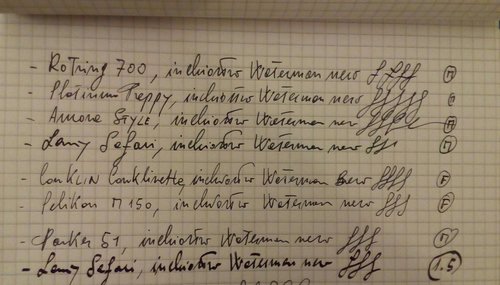 - Rotring 700, inchiostro Waterman nero fffff M
- Platinum Preppy, inchiostro Waterman nero fffff
- Amore STYLE, inchiostro Waterman nero ffff M
- Lamy Safari, inchiostro Waterman nero fff M
- Conklin Conklinette, inchiostro Waterman nero ffff F
- Pelikan M150, inchiostro Waterman nero fff F
- Parker 51, inchiostro Waterman nero fff M
- Lamy Safari, inchiostro Waterman nero fff 1.5